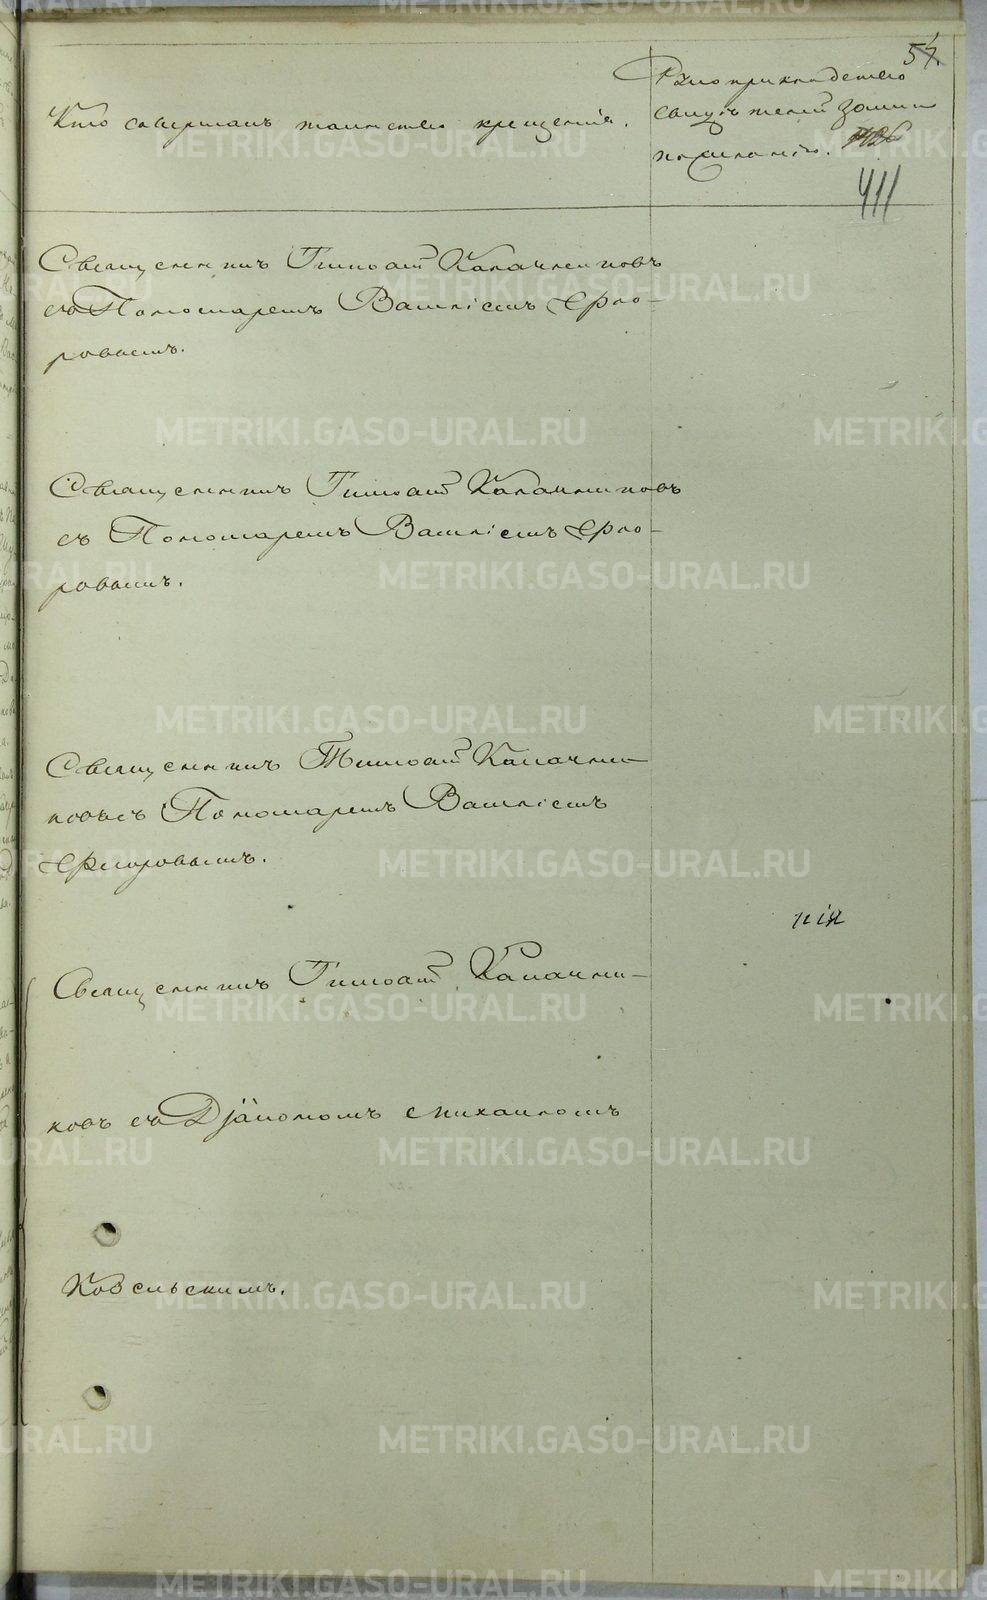 57.
Кто совершалъ таинство крещенія.
Рукоприкладство
свидѣтелей записи
по желанію.
411
Священникъ Тимоѳей Калачниковъ
съ Пономаремъ Василіемъ Фло-
ровымъ.
Священникъ Тимоѳей Калачниковъ
съ Пономаремъ Василіемъ Фло-
ровымъ.
Священникъ Тимоѳей Калачни-
ковъ съ Пономаремъ Василіемъ
Флоровымъ.
нія
Священникъ Тимоѳей Калачни-
ковъ съ Діакономъ Михаиломъ
Ковельскимъ.
METRIKI.GASO-URAL.RU